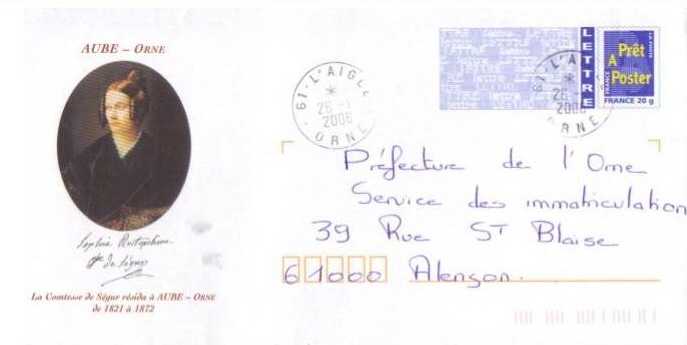 AUBE – ORNE
Sophie Rostopchine
Ctesse de Ségur
La Comtesse de Ségur résida à AUBE – ORNE
de 1821 à 1872
61-L'AIGLE
26-1
2006
ORNE
LETTRE
LA POSTE
Prêt
A
Poster
FRANCE
FRANCE 20 g
61-L'AIGLE
26-1
2006
ORNE
Préfecture de l'Orne
Service des immatriculation
39 Rue ST Blaise
61000 Alençon.